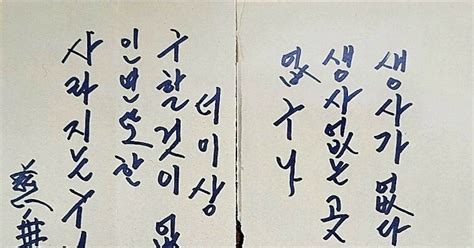 생사가 없다
생사없는 곳
없구나
더 이상
구할것이 없
인연또한
사라지는구나